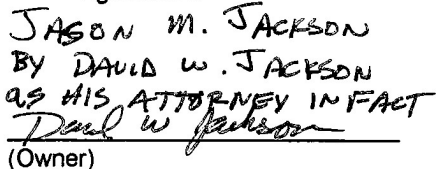 JASON M. JACKSON
BY DAVID W. JACKSON
as HIS ATTORNEY IN FACT
David W Jackson
(Owner)